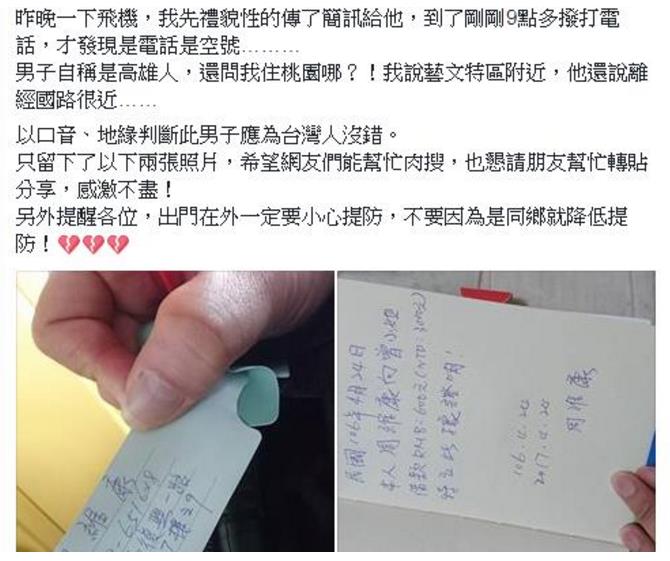 昨晚一下飛機，我先禮貌性的傳了簡訊給他，到了剛剛9點多撥打電
話，才發現是電話是空號………
男子自稱是高雄人，還問我住桃園哪？！我說藝文特區附近，他還說離
經國路很近……
以口音、地緣判斷此男子應為台灣人沒錯。
只留下了以下兩張照片，希望網友們能幫忙肉搜，也懇請朋友幫忙轉貼
分享，感激不盡！
另外提醒各位，出門在外一定要小心提防，不要因為是同鄉就降低提
防！💔💔💔
民國106年4月24日
本人周維康向曾小姐
借款RMB:600元(NTD:3000元)
特立此據證明!
周維康
106.4.24
2017.4.24
維康